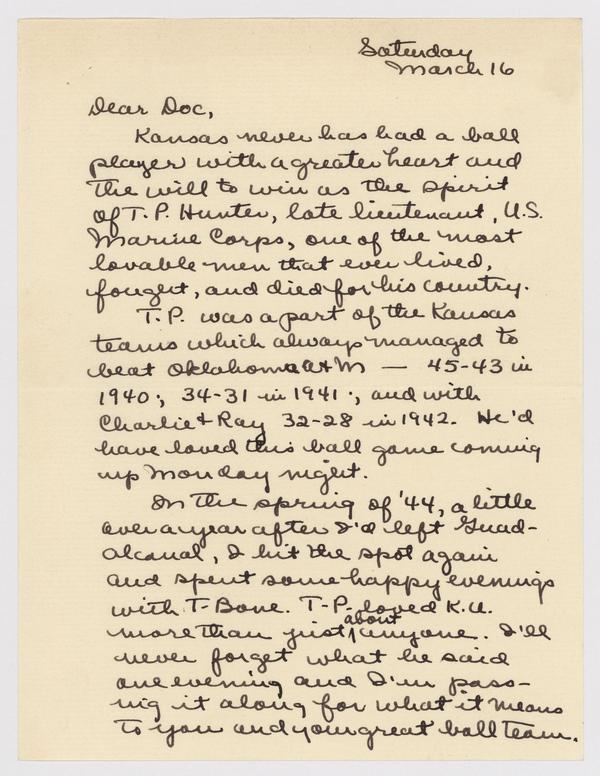 Saturday
March 16
Dear Doc,
Kansas never has had a ball
player with a greater heart and
the will to win as the spirit
of T.P. Hunter, late lieutenant, U.S.
Marine Corps, one of the most
lovable men that ever lived,
fought, and died for his country.
T.P. was a part of the Kansas
teams which always managed to
beat Oklahoma A+M — 45-43 in
1940; 34-31 in 1941; and with
Charlie + Ray 32-28 in 1942. He'd
have loved this ball game coming
up Monday night.
In the spring of '44, a little
over a year after I'd left Guad-
alcanal, I hit the spot again
and spent some happy evenings
with T-Bone. T-P. loved K.U.
more than just about anyone. I'll
never forget what he said
one evening and I'm pass-
ing it along for what it means
to you and your great ball team.